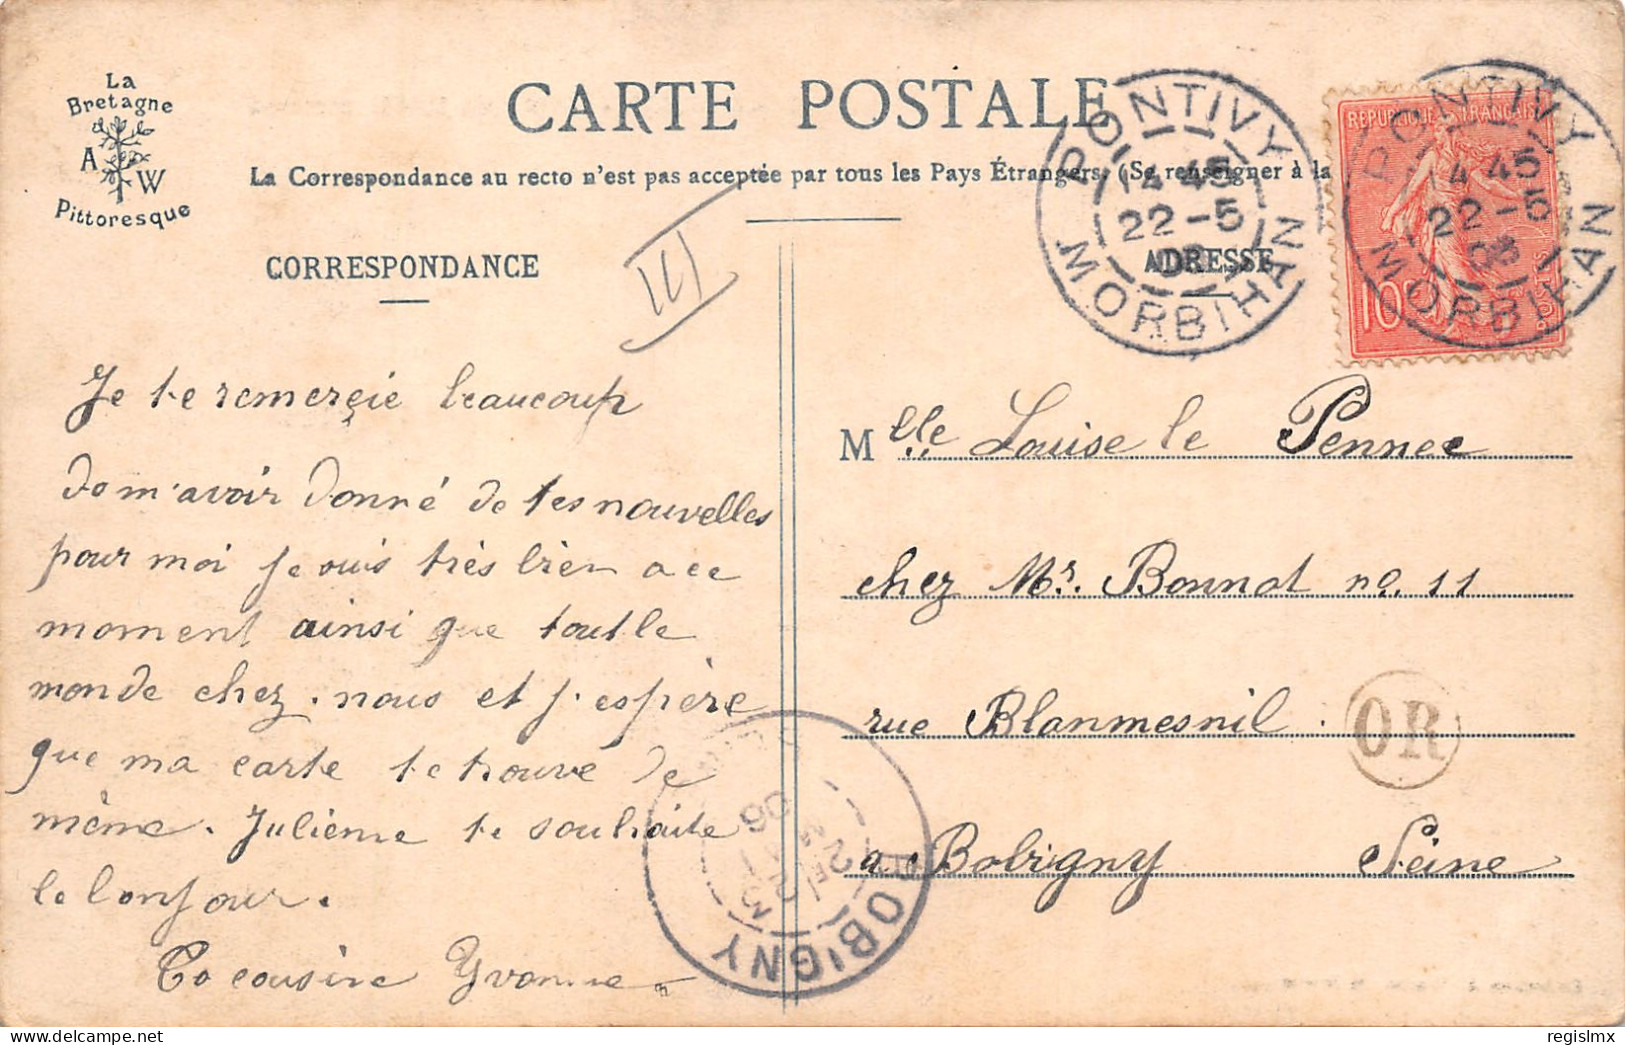 La
Bretagne
A W
Pittoresque
CARTE POSTALE
La Correspondance au recto n'est pas acceptée par tous les Pays Étrangers. (Se renseigner à la
CORRESPONDANCE
ADRESSE
PONTIVY
14 45
22-5
06
MORBIHAN
REPUBLIQUE FRANÇAISE
10c
POSTES
PONTIVY
14 45
22-5
06
MORBIHAN
Je te remerçie beaucoup
do m'avoir donné de tes nouvelles
pour moi je suis très bien a ce
moment ainsi que tout le
monde chez nous et j'espère
que ma carte te trouve de
même. Julienne te souhaite
le bonjour.
Ta cousine Yvonne
Mlle Louise le Pennec
chez Mr. Bonnot no. 11
rue Blanmesnil.
OR
a Bobigny Seine
BOBIGNY
23
06
regislmx